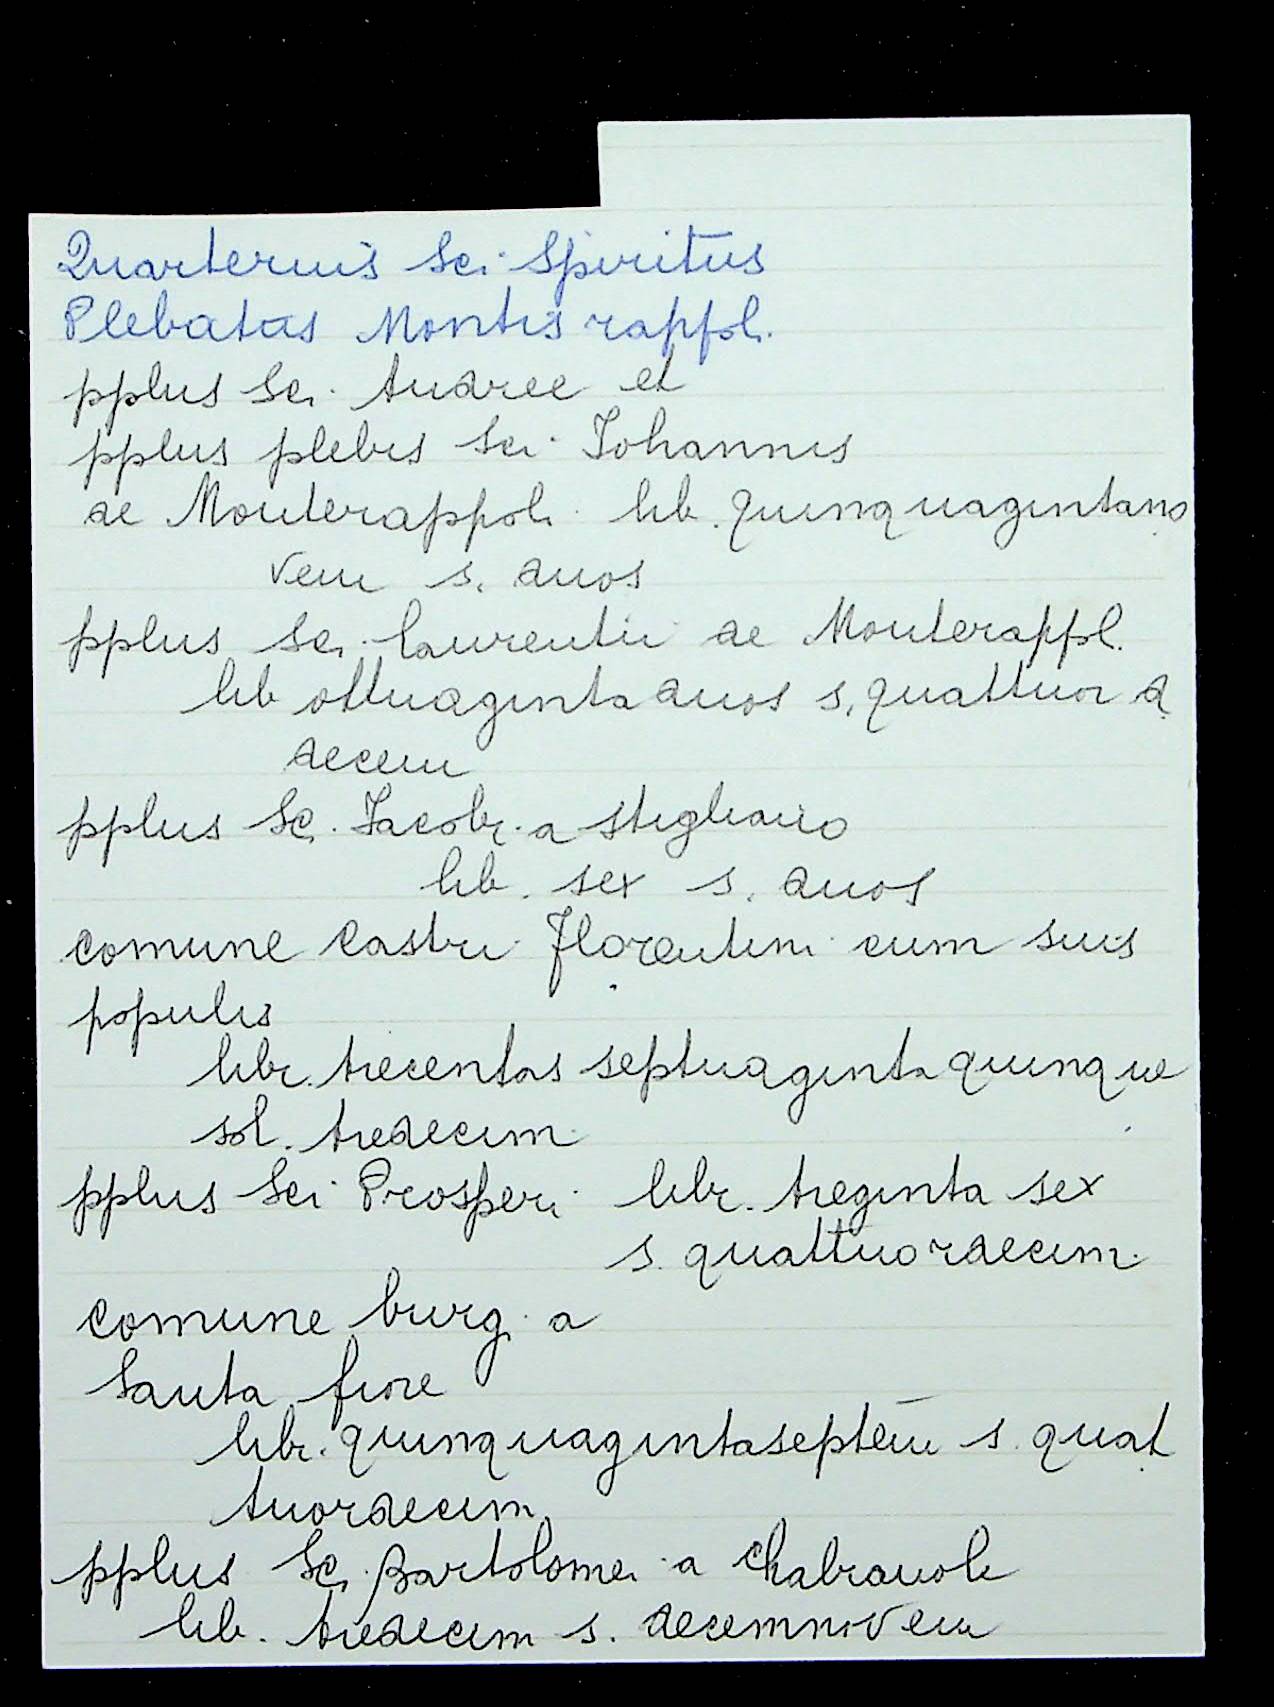 Quarternus Sci Spiritus
Plebatus Montis rappoli
pplus Sci Andree et
pplus plebis Sci Johannis
de Monterappoli lib. quinquagintano
vem s. duos
pplus Sci Laurentii de Monterappl.
lib ottuaginta duos s. quattuor d
decem
pplus Sci Iacobi a Stigliano
lib. sex s. duos
comune Castri Florentini cum suis
populis
libr. trecentas septuaginta quinque
sol. tredecim
pplus Sci Prosperi libr. treginta sex
s. quattuordecim
comune burgi a
Santa fiore
libr. quinquagintaseptem s. quat
tuordecim
pplus Sci Bartolomei a Chabravoli
lib. tredecim s. decemnovem